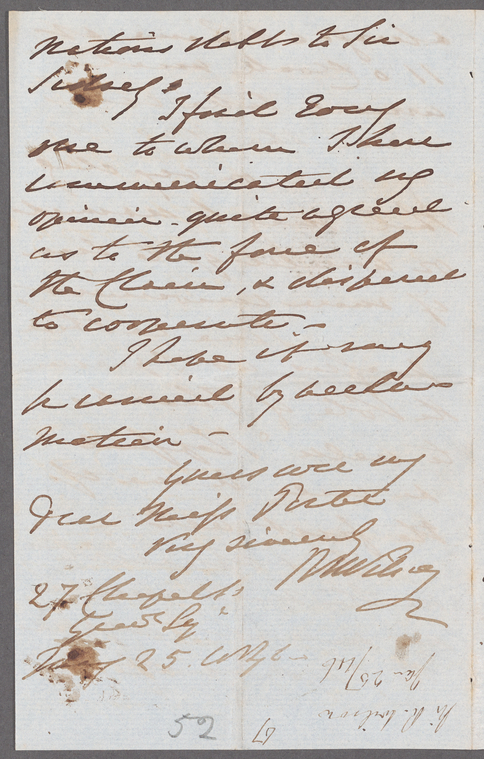 nations debts to Sir
Sidney.
I find Every
one to whom I have
communicated my
opinion - quite agreed
as to the force of
the Claim, & disposed
to cooperate -
I hope it may
be carried by
motion -
yours
dear Miss Porter
very sincerely
27 Chapel St
Grosr Sq
25.
Sir R. Wilson
52